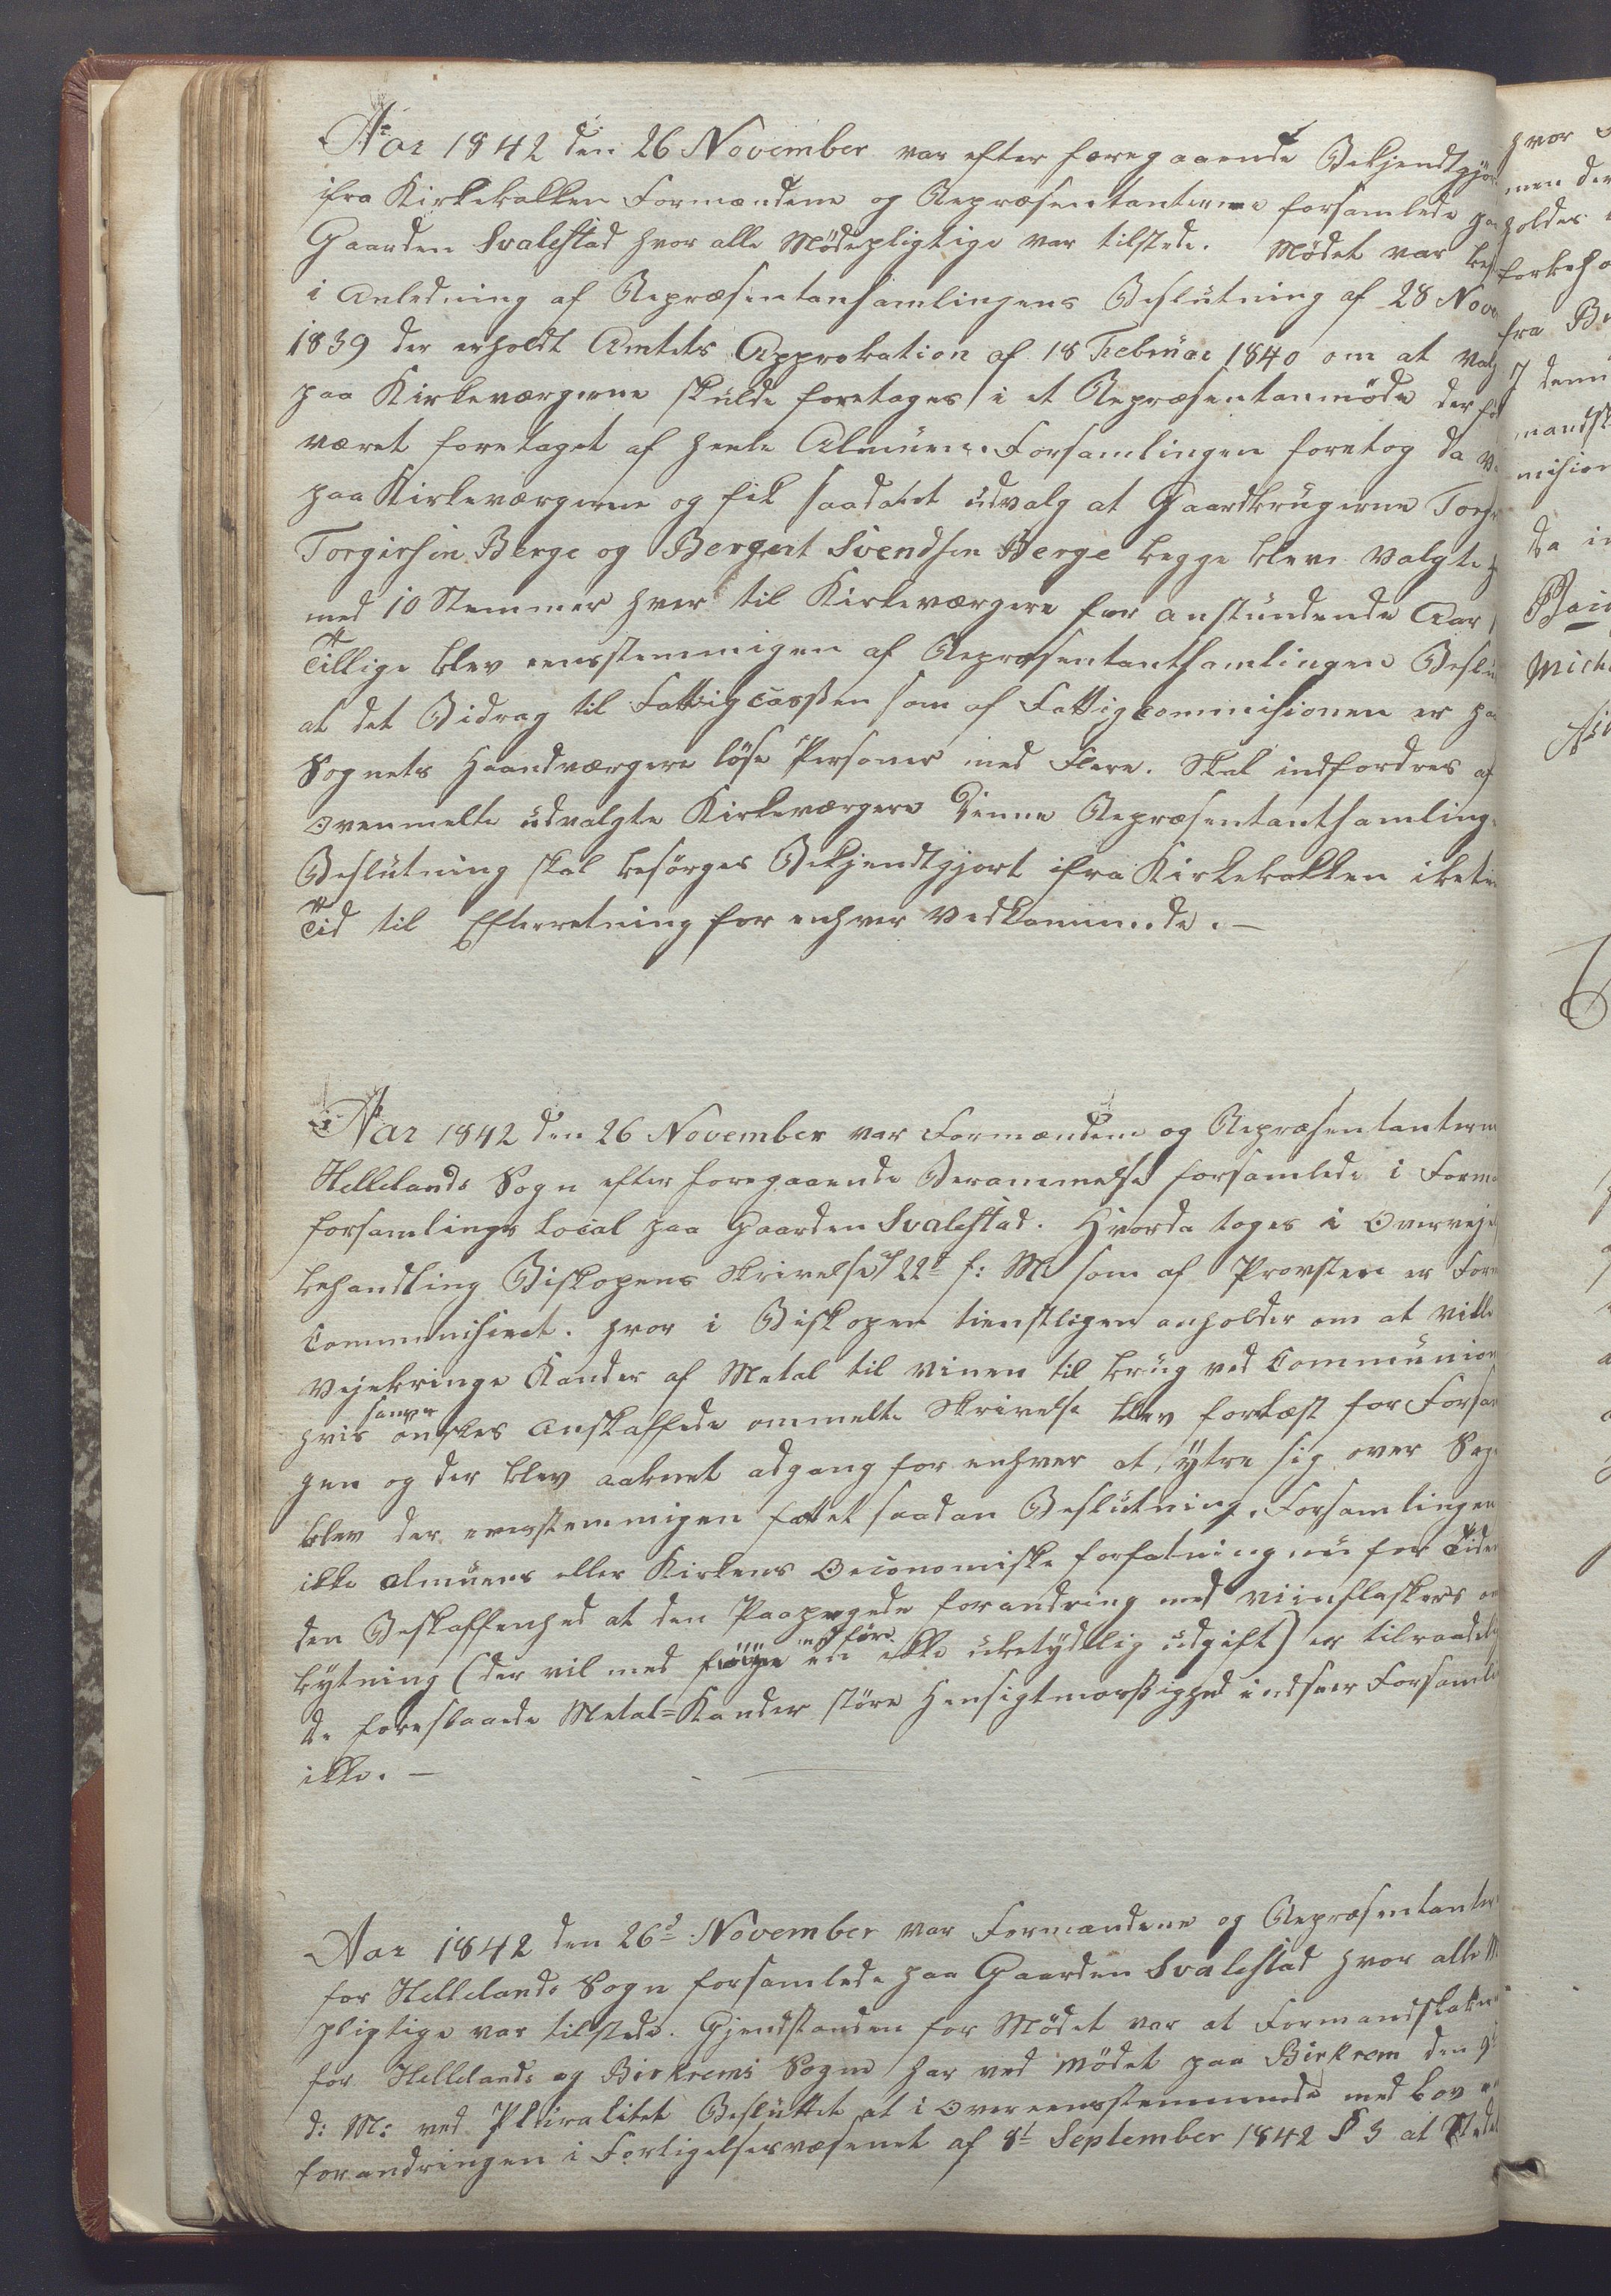 Aar 1842 den 26 November var efter foregaaende Bekjendtgjö
ifra Kirkebakken Formændene og Repræsentanterne forsamlede paa
Gaarden Svalestad hvor alle Mödepligtige var tilstede. Mödet var
i Anledning af Repræsentansamlingens Beslutning af 28 Nove
1839 der erholdt Amtets Approbation af 18 Februar 1840 om at Valg
paa Kirkeværgerne skulde foretages i et Repræsentanmöde der för
været foretaget af heele Almuen. Forsamlingen foretog da
paa Kirkeværgerne og fik saadant udvalg at Gaardbrugerne
Torgersen Berge og Bergent Svendsen Berge begge blev Valgte
med 10 Stemmer hver til Kirkeværgere for anstundende Aar
Tillige blev eensstemmigen af Repræsentantsamlingen Beslu
at det Bidrag til Fattigcassen som af Fattigcommisionen er paa
Sognets Haandværgere löse Personer med Flere. Skal indfordres af
Ovenmelte udvalgte Kirkeværgere Denne Repræsentantsamling
Beslutning skal besörges Bekjendtgjort ifra Kirkebakken
Tid til Efterretning for enhver Vedkommende. —
Aar 1842 den 26 November var Formændene og Repræsentanterne
Hellelands Sogn efter foregaaende Berammelse forsamlede i Forma
forsamlings Local paa Gaarden Svalestad. Hvorda toges i Overveje
behandling Biskopens Skrivelse af 22d f: M som af Provsten er
Communiseret. hvor i Biskopen tienstligen anholder om at ville
Vejebringe Kander af Metal til Vinen til brug ved Communion
hvis saaver önskes Anskaffede ommelte Skrivelse blev forlæst for Forsam
gen og der blev aabnet adgang for enhver at ytre sig over
blev der eensstemmigen fattet saadan Beslutning. Forsamlingen
ikke almuens eller Kirkens Oeconomiske forfatning nu for Tiden
den Beskaffenhed at den Paapegede forandring med Viinflaskers
bytning (der vil med före en ikke ubetydelig udgift) er tilraadelig
de foreslaaede Metal=Kander större Hensigtmæssighed indseer Forsamli
ikke. —
Aar 1842 den 26d November var Formændene og Repræsentanter
for Hellelands Sogn forsamlede paa Gaarden Svalestad hvor alle M
pligtige var tilstede. Gjenstanden for Mödet var at Formandskabern
for Hellelands og Birkrems Sogne har ved Mödet paa Birkrem den 9
d: M: ved Pluralitet Besluttet at i Overeensstemmende med Lov
forandringen i Forligelsesvæsenet af 8d September 1842 § 3 at